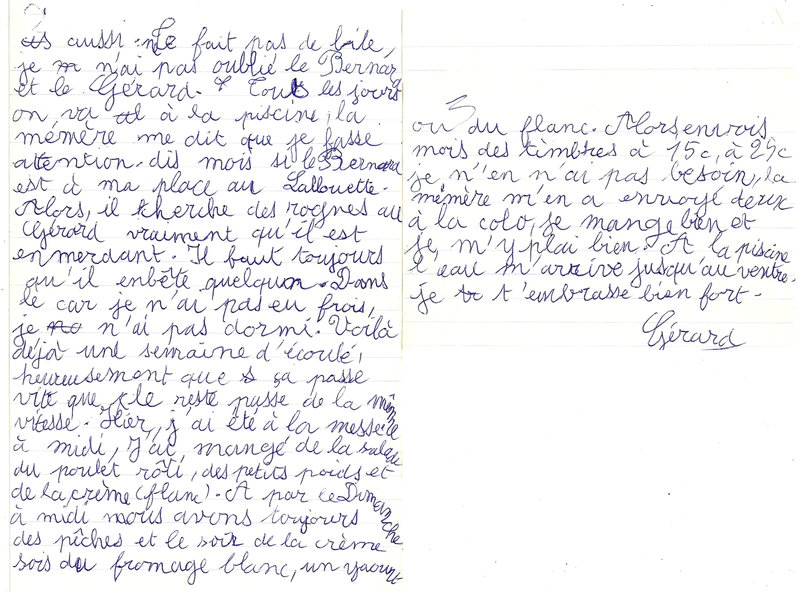 aussi. Ne fait pas de bile,
je n'ai pas oublié le Bernard
et le Gérard. Tout les jours
on va à la piscine, la
mémère me dit que je fasse
attention. dis mois si le Bernard
est à ma place au Lallouette.
Alors, il cherche des rognes au
Gérard vraiment qu'il est
enmerdant. Il faut toujours
qu'il enbête quelqun. Dans
le car je n'ai pas eu frois,
je n'ai pas dormi. Voilà
déjà une semaine d'écoulé,
heureusement que ça passe
vite que le reste passe de la même
vitesse. Hier, j'ai été à la messe
à midi, J'ai mangé de la salade
du poulet rôti, des petits poids et
de la crème (flanc). A par ce Dimanche
à midi nous avons toujours
des pîches et le soir de la crème
sois du fromage blanc, un yaourt
3
ou du flanc. Alors envois
mois des timbres à 15c, à 25c
je n'en n'ai pas besoin, la
mémère m'en a envoyé deux
à la colo, je mange bien et
je m'y plai bien. A la piscine
l'eau m'arrive jusqu'au ventre.
je t'embrasse bien fort.
Gérard